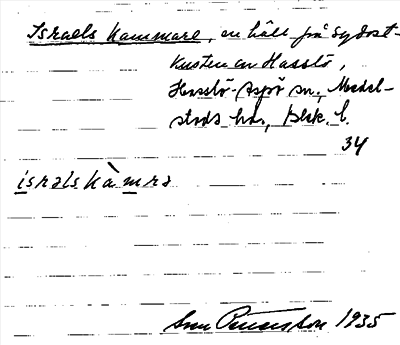 Israels Kammare, en häll på sydost-
kusten av Hasslö,
Hasslö-Aspö sn., Medel-
stads hd., Blek. l.
34
israls kàmra
Sven Pettersson 1935